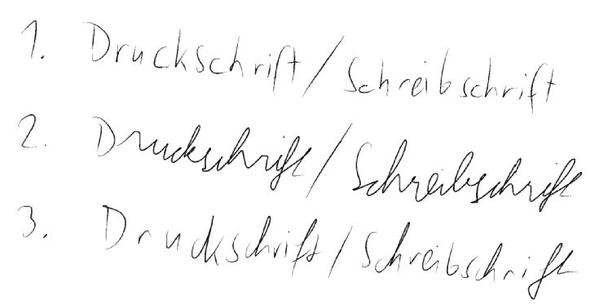 1. Druckschrift/Schreibschrift
2. Druckschrift/Schreibschrift
3. Druckschrift/Schreibschrift